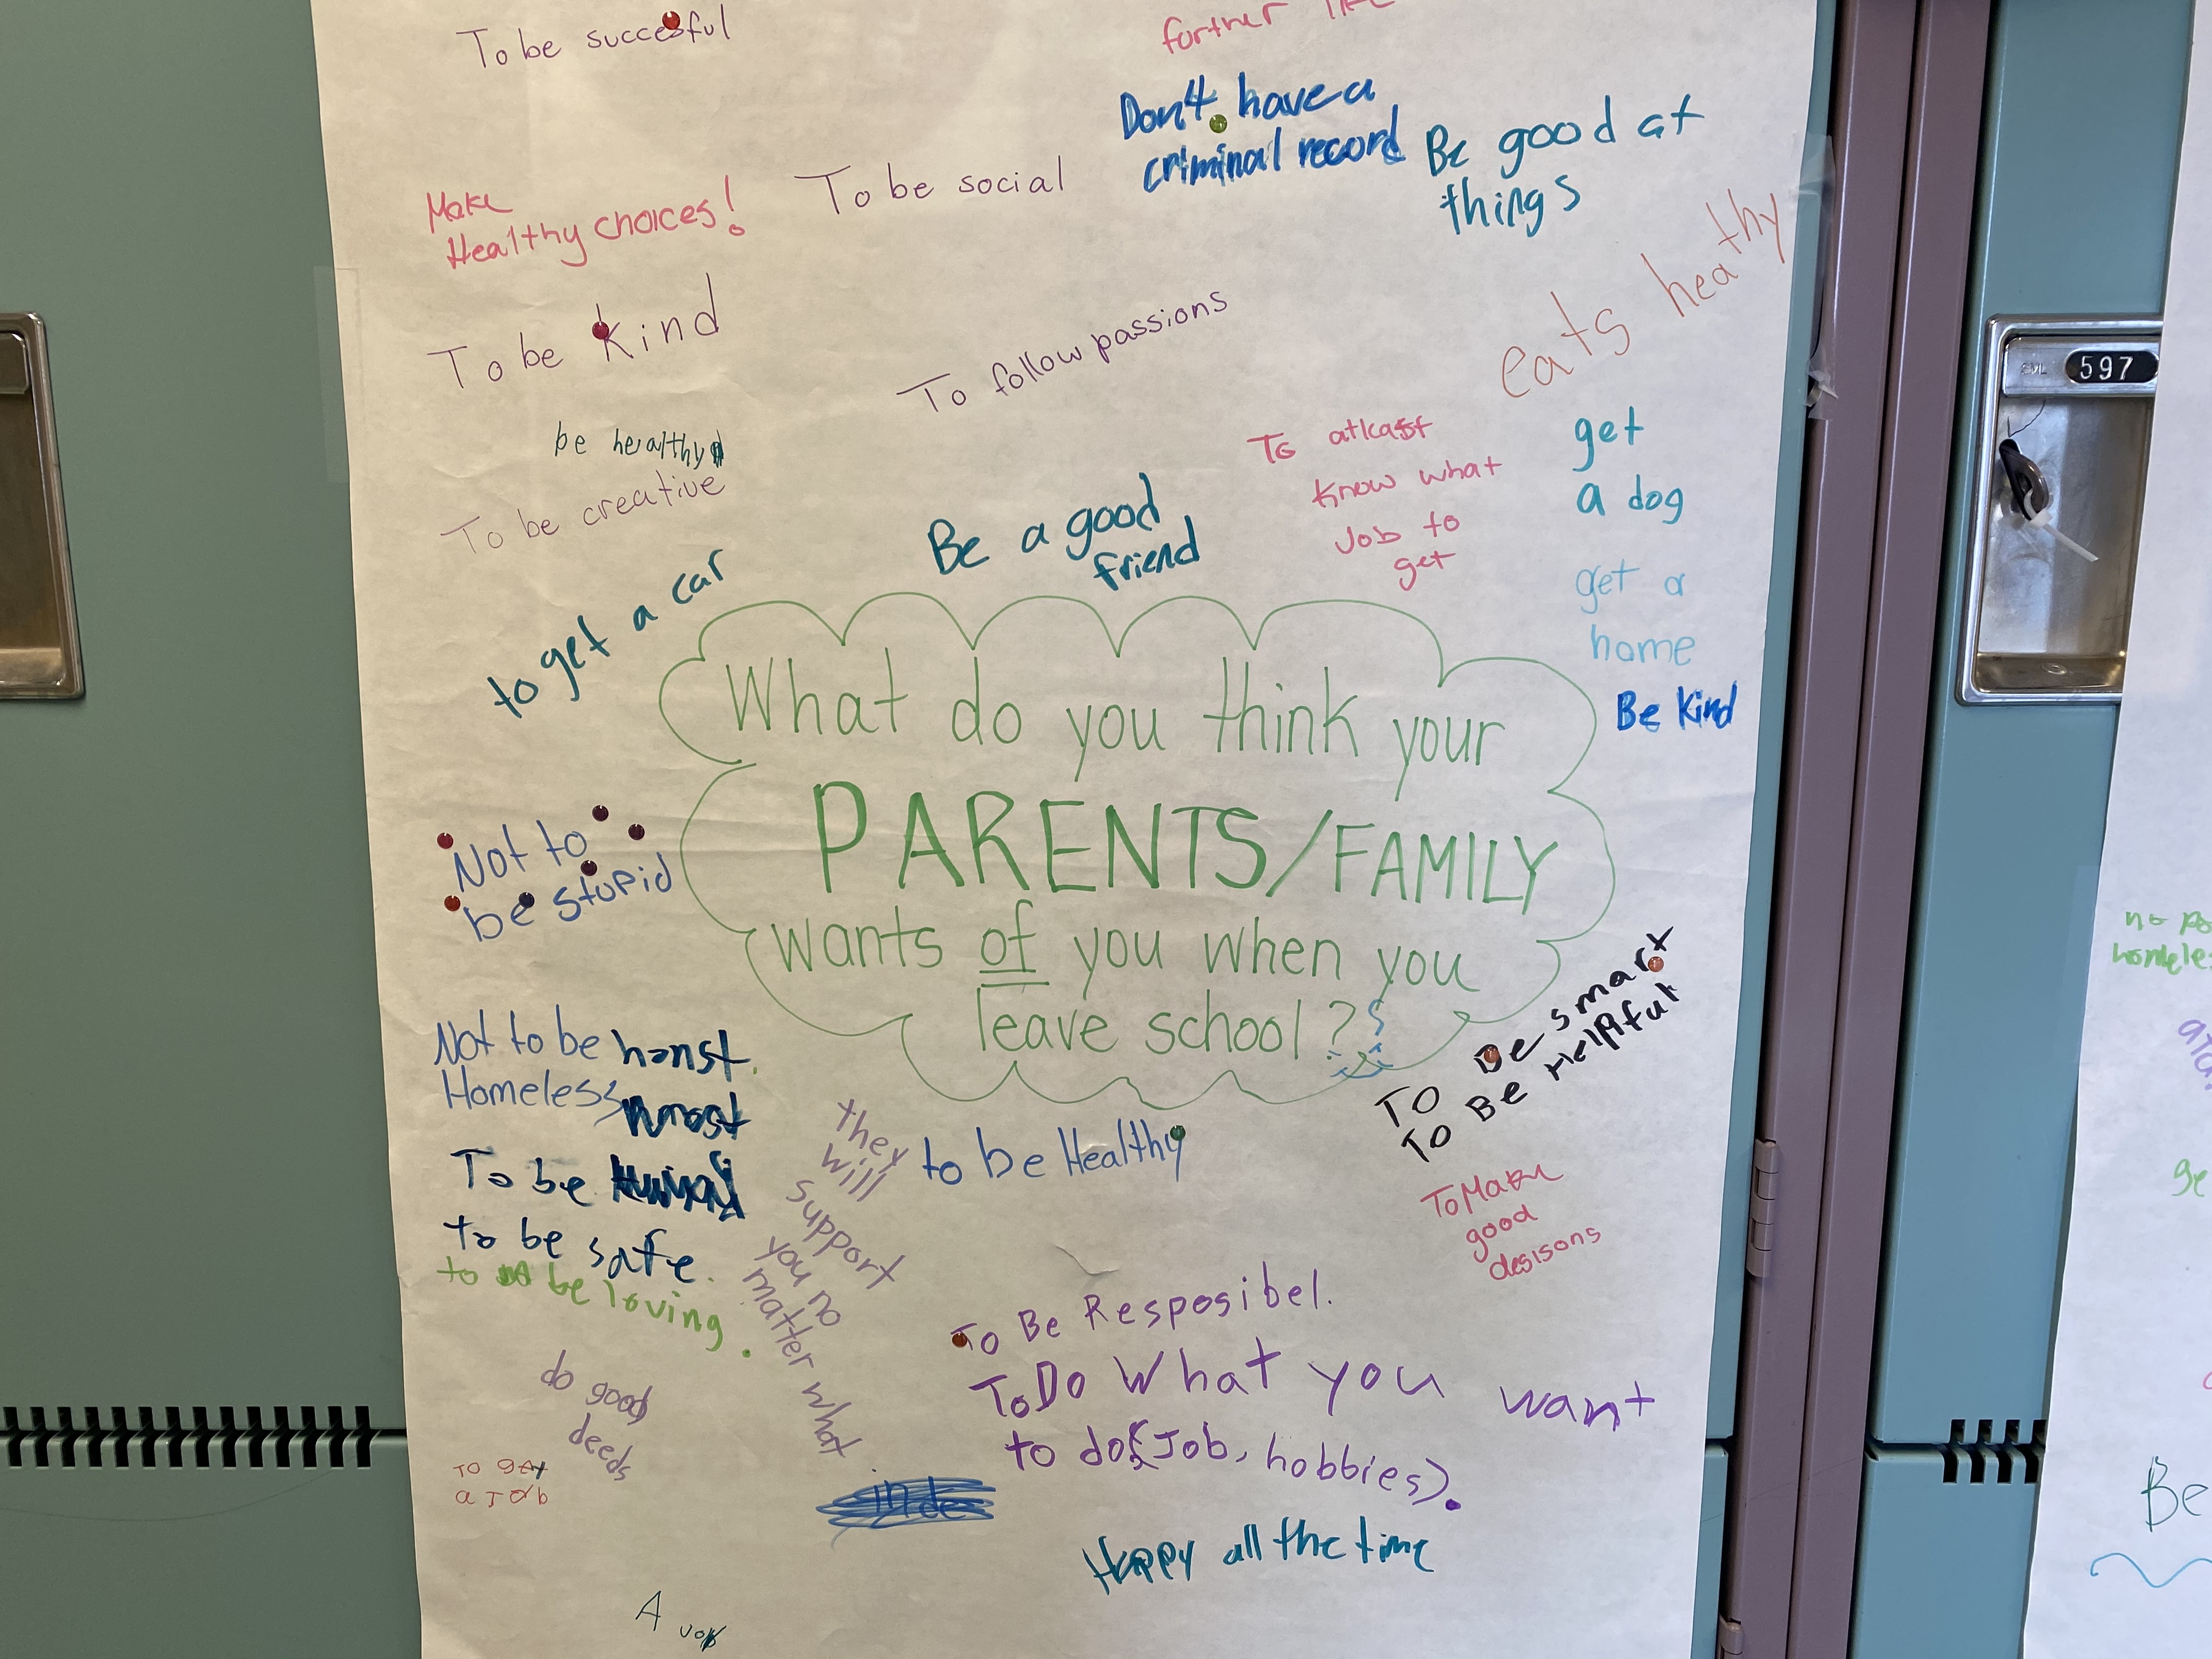 To be succesful
further
Don't have a
criminal record
Be good at
things
Make
Healthy choices!
To be social
To be kind
To follow passions
eats heathy
597
be healthy
To be creative
To atleast
know what
Job to
get
get
a dog
Be a good
friend
to get a car
get a
home
Be Kind
What do you think your
PARENTS/FAMILY
wants of you when you
leave school?
Not to
be stupid
To Be smart
To Be Helpful
Not to be
Homeless
honst.
To be
to be safe.
to be loving.
they
will
support
you no
matter what
to be Healthy
To Make
good
desisons
To Be Resposibel.
To Do What you want
to do (Job, hobbies).
do good
deeds
TO GET
a JOB
Happy all the time
A job
Be